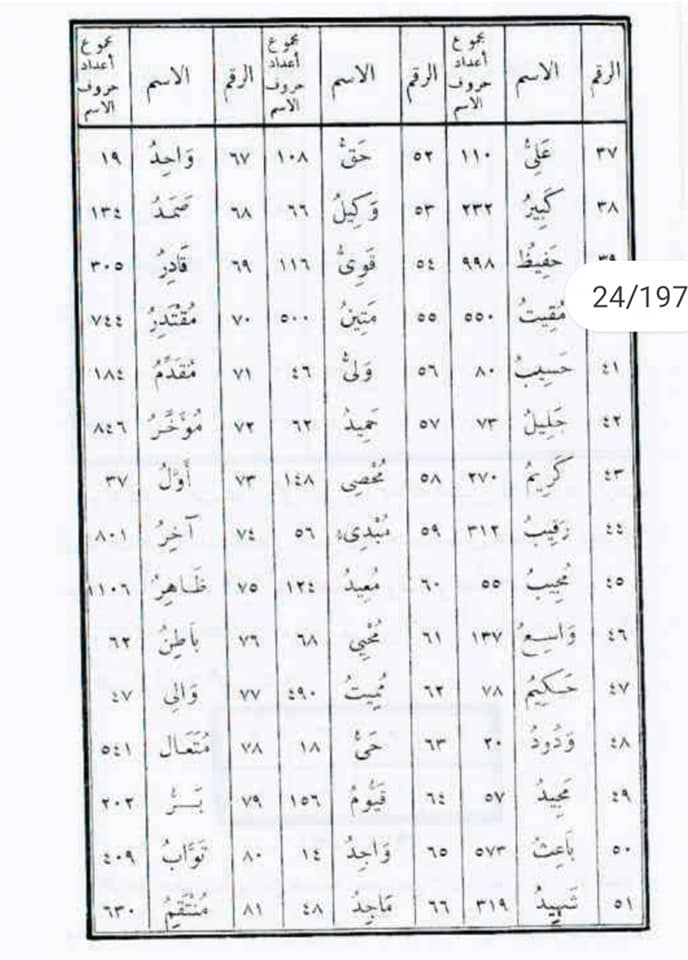 الرقم الاسم مجموع أعداد حروف الاسم الرقم الاسم مجموع أعداد حروف الاسم الرقم الاسم مجموع أعداد حروف الاسم
٣٧ عَلِىُّ ١١٠ ٥٢ حَقُّ ١٠٨ ٦٧ وَاحِدُ ١٩
٣٨ كَبِيرُ ٢٣٢ ٥٣ وَكِيلُ ٦٦ ٦٨ صَمَدُ ١٣٤
٣٩ حَفِيظُ ٩٩٨ ٥٤ قَوِىُّ ١١٦ ٦٩ قَادِرُ ٣٠٥
24/197
مُقِيتُ ٥٥٠ ٥٥ مَتِينُ ٥٠٠ ٧٠ مُقْتَدِرُ ٧٤٤
٤١ حَسِيبُ ٨٠ ٥٦ وَلىُّ ٤٦ ٧١ مُقَدِّمُ ١٨٤
٤٢ جَلِيلُ ٧٣ ٥٧ حَمِيدُ ٦٢ ٧٢ مُوَخِّرُ ٨٤٦
٤٣ كَرِيمُ ٢٧٠ ٥٨ مُحْصِى ١٤٨ ٧٣ أَوَّلُ ٣٧
٤٤ رَقِيبُ ٣١٢ ٥٩ مُبْدِىء ٥٦ ٧٤ آخِرُ ٨٠١
٤٥ مُجِيبُ ٥٥ ٦٠ مُعِيدُ ١٢٤ ٧٥ ظَاهِرُ ١١٠٦
٤٦ وَاسِعُ ١٣٧ ٦١ مُحْيِي ٦٨ ٧٦ بَاطِنُ ٦٢
٤٧ حَكِيمُ ٧٨ ٦٢ مُمِيتُ ٤٩٠ ٧٧ وَالِي ٤٧
٤٨ وَدُودُ ٢٠ ٦٣ حَىُّ ١٨ ٧٨ مُتَعَال ٥٤١
٤٩ مَجِيدُ ٥٧ ٦٤ قَيُّومُ ١٥٦ ٧٩ بَـرُّ ٢٠٢
٥٠ بَاعِثُ ٥٧٣ ٦٥ وَاجِدُ ١٤ ٨٠ تَوَّابُ ٤٠٩
٥١ شَهِيدُ ٣١٩ ٦٦ مَاجِدُ ٤٨ ٨١ مُنْتَقِمُ ٦٣٠